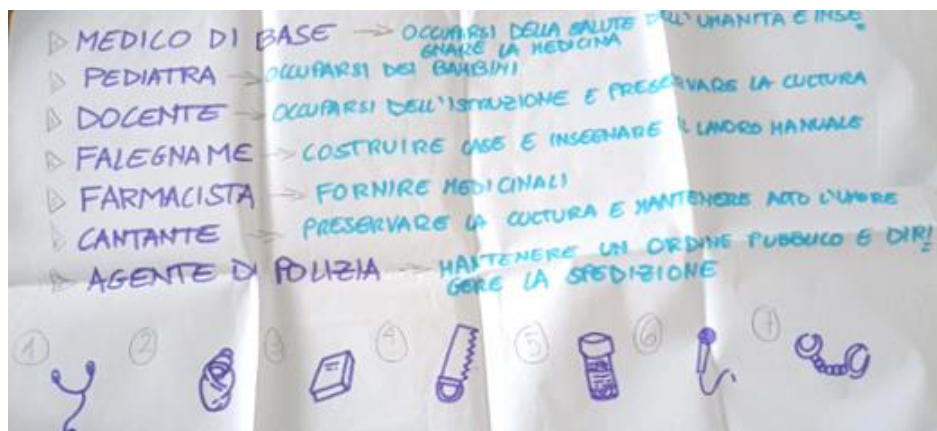 ▷ MEDICO DI BASE → OCCUPARSI DELLA SALUTE DELL'UMANITÀ E INSE
GNARE LA MEDICINA
▷ PEDIATRA → OCCUPARSI DEI BAMBINI
▷ DOCENTE → OCCUPARSI DELL'ISTRUZIONE E PRESERVARE LA CULTURA
▷ FALEGNAME → COSTRUIRE CASE E INSEGNARE IL LAVORO MANUALE
▷ FARMACISTA → FORNIRE MEDICINALI
▷ CANTANTE → PRESERVARE LA CULTURA E MANTENERE ALTO L'UMORE
▷ AGENTE DI POLIZIA → MANTENERE UN ORDINE PUBBLICO E DIRI
GERE LA SPEDIZIONE
1 2 3 4 5 6 7